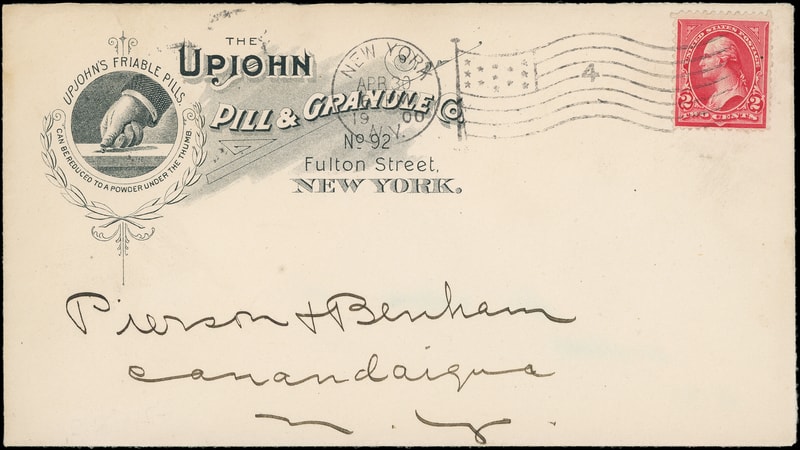 THE
UPJOHN
PILL & GRANULE CO
No. 92
Fulton Street,
NEW YORK.
UPJOHN'S FRIABLE PILLS,
CAN BE REDUCED TO A POWDER UNDER THE THUMB.
NEW YORK
APR 30
19 00
N.Y.
4
UNITED STATES POSTAGE
2 2
TWO CENTS
Pierson & Benham
Canandaigua
N. Y.